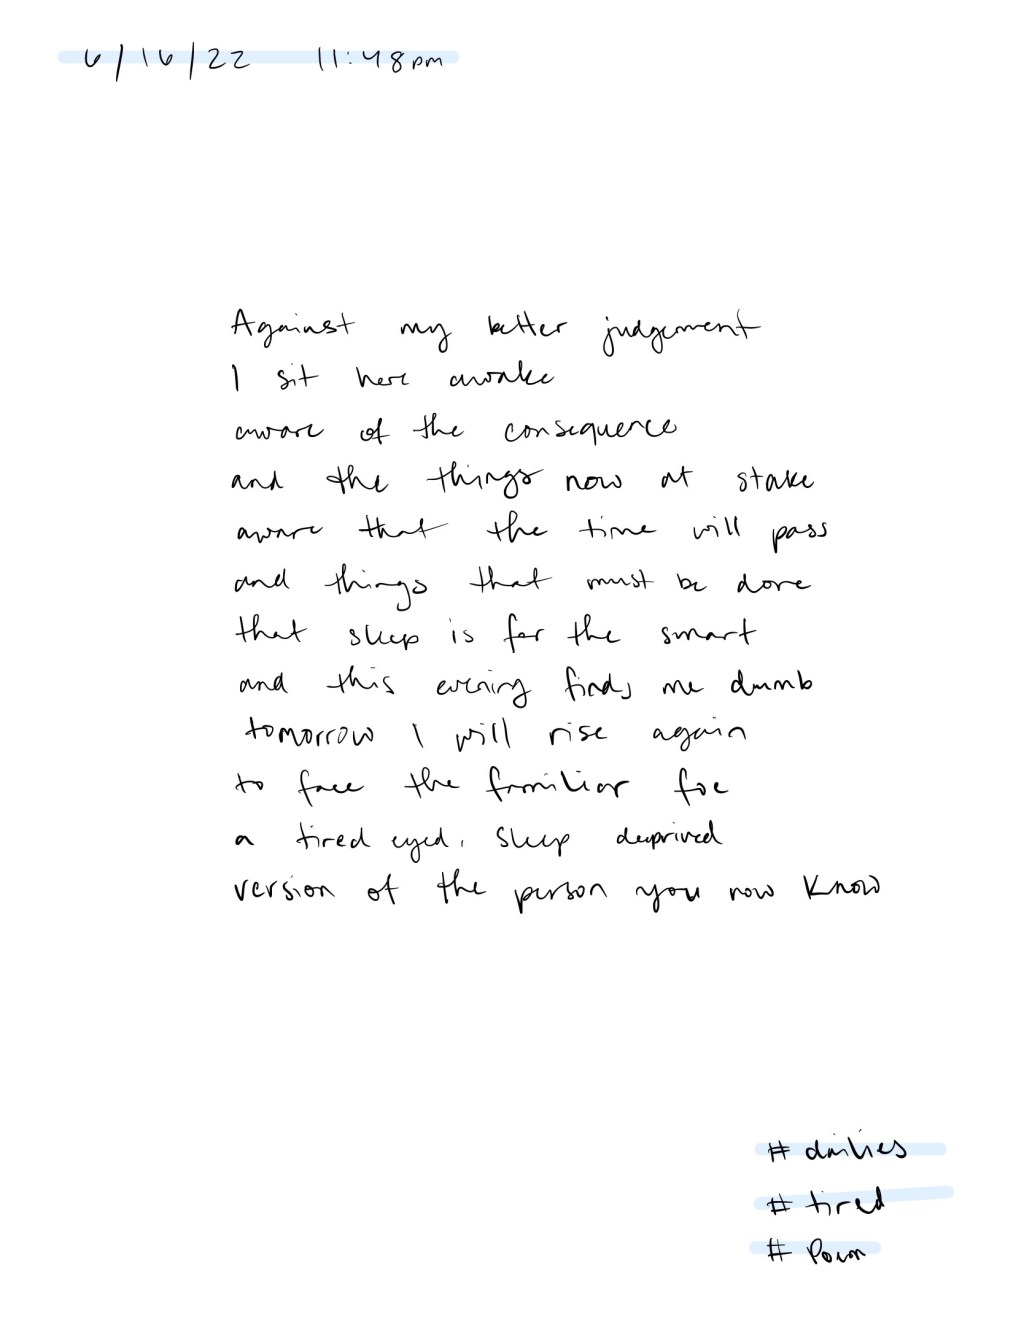 6/16/22 11:48pm
Against my better judgement
I sit here awake
aware of the consequence
and the things now at stake
aware that the time will pass
and things that must be done
that sleep is for the smart
and this evening finds me dumb
tomorrow I will rise again
to face the familiar foe
a tired eyed, sleep deprived
version of the person you now know
# dailies
# tired
# Poem